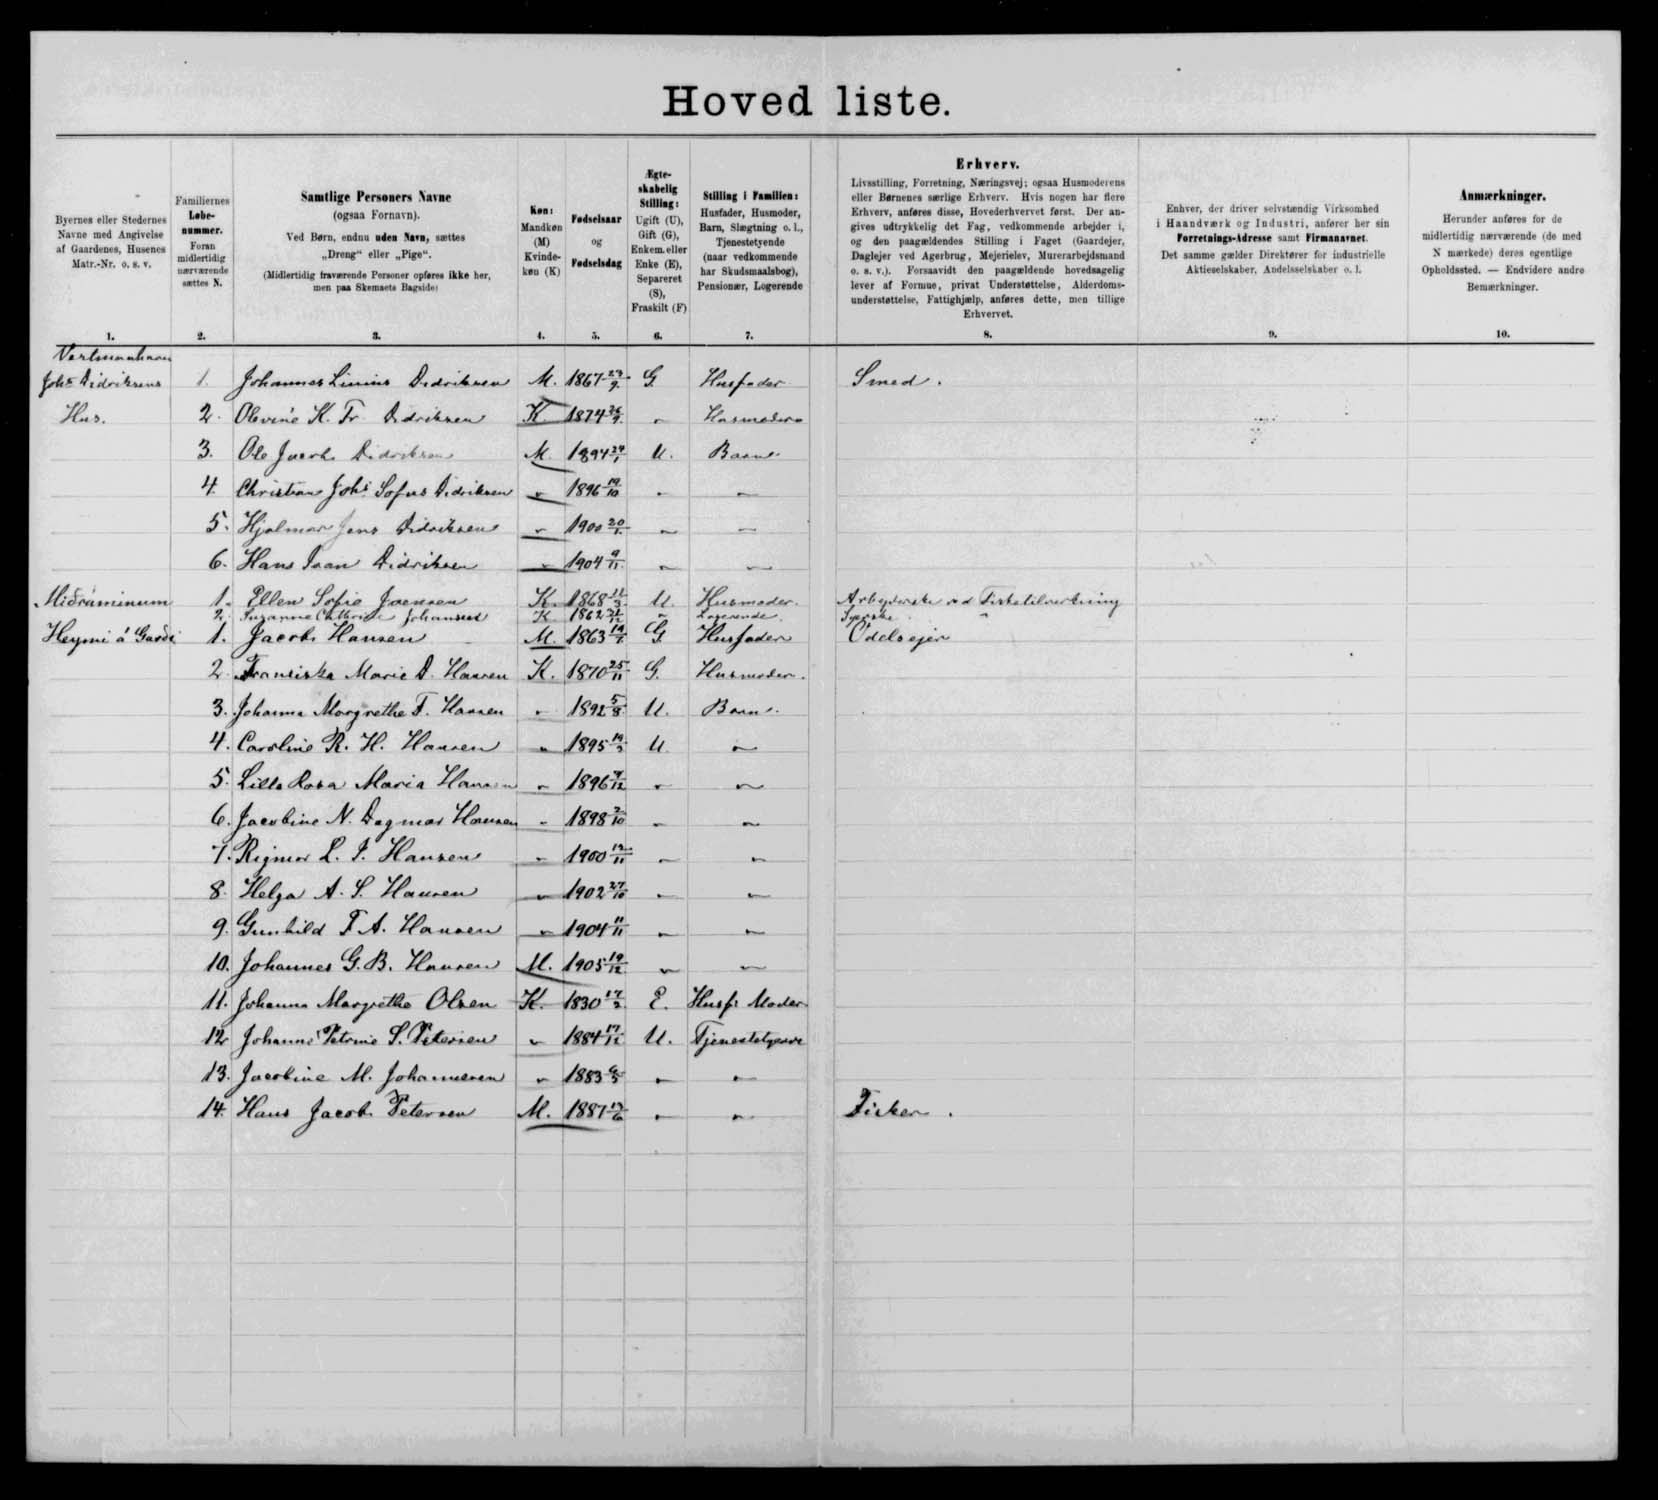 Hoved liste.
Byernes eller Stedernes
Navne med Angivelse
af Gaardenes, Husenes
Matr.-Nr. o. s. v.
1.
Familiernes
Løbe-
nummer.
Foran
midlertidig
nærværende
sættes N.
2.
Samtlige Personers Navne
(ogsaa Fornavn).
Ved Børn, endnu uden Navn, sættes
„Dreng“ eller „Pige“.
(Midlertidig fraværende Personer opføres ikke her,
men paa Skemaets Bagside)
3.
Køn:
Mandkøn
(M)
Kvinde-
køn (K)
4.
Fødselsaar
og
Fødselsdag
5.
Ægte-
skabelig
Stilling:
Ugift (U),
Gift (G),
Enkem. eller
Enke (E),
Separeret
(S),
Fraskilt (F)
6.
Stilling i Familien:
Husfader, Husmoder,
Barn, Slægtning o. l.,
Tjenestetyende
(naar vedkommende
har Skudsmaalsbog),
Pensionær, Logerende
7.
Erhverv.
Livsstilling, Forretning, Næringsvej; ogsaa Husmoderens
eller Børnenes særlige Erhverv. Hvis nogen har flere
Erhverv, anføres disse, Hovederhvervet først. Der an-
gives udtrykkelig det Fag, vedkommende arbejder i,
og den paagældendes Stilling i Faget (Gaardejer,
Daglejer ved Agerbrug, Mejerielev, Murerarbejdsmand
o. s. v.). Forsaavidt den paagældende hovedsagelig
lever af Formue, privat Understøttelse, Alderdoms-
understøttelse, Fattighjælp, anføres dette, men tillige
Erhvervet.
8.
Enhver, der driver selvstændig Virksomhed
i Haandværk og Industri, anfører her sin
Forretnings-Adresse samt Firmanavnet.
Det samme gælder Direktører for industrielle
Aktieselskaber, Andelsselskaber o. l.
9.
Anmærkninger.
Herunder anføres for de
midlertidig nærværende (de med
N mærkede) deres egentlige
Opholdssted. — Endvidere andre
Bemærkninger.
10.
Vestmanhavn
Johs Didriksens 1. Johannes Linius Didriksen M. 1867 G Husfader Smed.
Hus. 2. Olevine K. Fr. Didriksen K 1874 26/9 " Husmoder
3. Ole Jacob Didriksen M. 1894 24/1 U. Barn
4. Christian Johs Sofus Didriksen " 1896 19/10 " "
5. Hjalmar Jens Didriksen " 1900 20/1 " "
6. Hans Ivan Didriksen " 1904 9/11 " "
Miðrúminum 1. Ellen Sofie Joensen K. 1868 11/3 U. Husmoder. Arbejderske ved Fisketilvirkning
2. Susanne Johansen K 1862 " Logerende. Syerske "
Heymi á Garði 1. Jacob Hansen M. 1863 G. Husfader Odelsejer
2. Franciska Marie D. Hansen K. 1870 25/11 G. Husmoder.
3. Johanna Margrethe F. Hansen " 1892 5/8 U. Barn.
4. Caroline R. H. Hansen " 1895 U "
5. Lilla Rosa Maria Hansen " 1896 " "
6. Jacobine N. Dagmar Hansen " 1898 2/10 " "
7. Rigmor L. J. Hansen " 1900 " "
8. Helga A. S. Hansen " 1902 27/10 " "
9. Gunhild F. A. Hansen " 1904 11/11 " "
10. Johannes G. B. Hansen M. 1905 19/12 " "
11. Johanna Margrethe Olsen K. 1830 17/2 E. Husfs Moder
12. Johanne Petrine S. Petersen " 1884 17/12 U. Tjenestetyende
13. Jacobine M. Johannesen " 1883 " "
14. Hans Jacob Petersen M. 1887 " " Fisker.